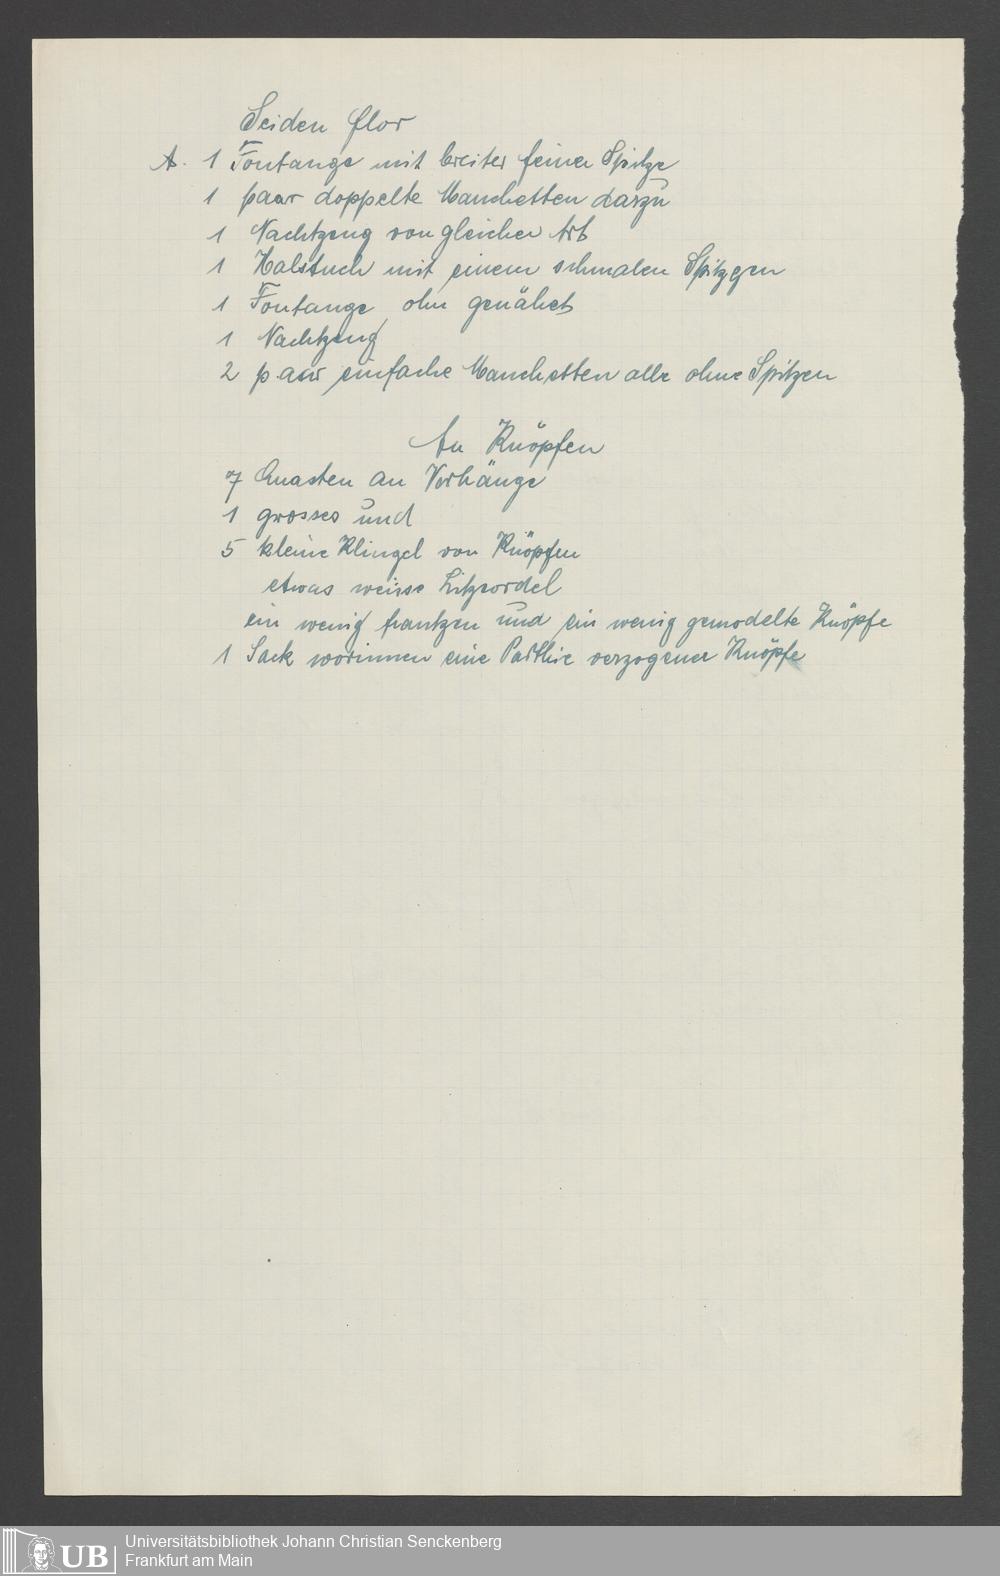 Seiden flor
A. 1 Fontange mit breiter feiner Spitze
1 paar doppelte Manchetten darzu
1 Nachtzeug von gleicher Art
1 Halstuch mit einem schmalen Spitzgen
1 Fontange ohn genähet
1 Nachtzeug
2 paar einfache Manchetten alle ohne Spitzen
An Knöpfen
7 Quasten an Vorhänge
1 grosses und
5 kleine Klingel von Knöpfen
etwas weisse Litzcordel
ein wenig frantzen und ein wenig gemodelte Knöpfe
1 Sack worinnen eine Parthie verzogener Knöpfe
UB
Universitätsbibliothek Johann Christian Senckenberg
Frankfurt am Main